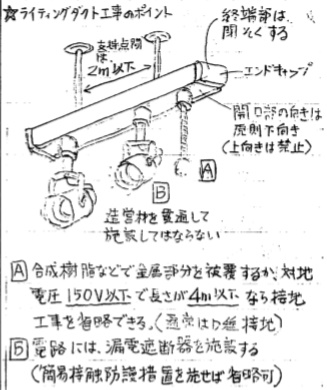 ☆ライティングダクト工事のポイント
支持点間は、
2m以下
終端部は
閉そくする
エンドキャップ
開口部の向きは
原則下向き
(上向きは禁止)
A
B
造営材を貫通して
施設してはならない
A 合成樹脂などで金属部分を被覆するか、対地
電圧150V以下で長さが4m以下なら接地
工事を省略できる。(通常はD種接地)
B 電路には、漏電遮断器を施設する
(簡易接触防護措置を施せば省略可)